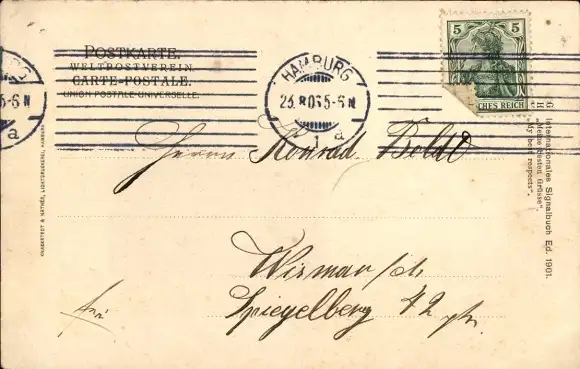 POSTKARTE.
WELTPOSTVEREIN.
CARTE-POSTALE.
UNION POSTALE UNIVERSELLE.
HAMBURG
23.8.06.5-6N
1 a
5-6 N
a
5 5
DEUTSCHES REICH
Herrn Konrad Boldt
Wismar
Spiegelberg 42
Internationales Signalbuch Ed. 1901.
"Meine besten Grüsse".
"My best respects".
KNACKSTEDT & NÄTHER, LICHTDRUCKEREI, HAMBURG